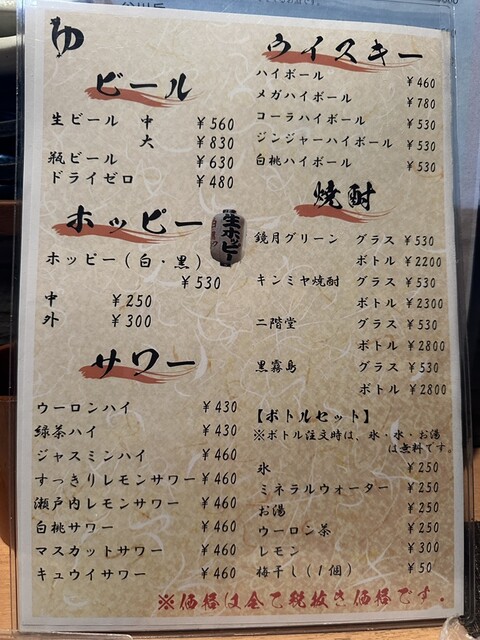 ゆ
ビール
生ビール 中 ￥560
大 ￥830
瓶ビール ￥630
ドライゼロ ￥480
ホッピー
生ホッピー
ホッピー（白・黒）
￥530
中 ￥250
外 ￥300
サワー
ウーロンハイ ￥430
緑茶ハイ ￥430
ジャスミンハイ ￥460
すっきりレモンサワー ￥460
瀬戸内レモンサワー ￥460
白桃サワー ￥460
マスカットサワー ￥460
キュウイサワー ￥460
ウイスキー
ハイボール ￥460
メガハイボール ￥780
コーラハイボール ￥530
ジンジャーハイボール ￥530
白桃ハイボール ￥530
焼酎
鏡月グリーン グラス ￥530
ボトル ￥2200
キンミヤ焼酎 グラス ￥530
ボトル ￥2300
二階堂 グラス ￥530
ボトル ￥2800
黒霧島 グラス ￥530
ボトル ￥2800
【ボトルセット】
※ボトル注文時は、氷・水・お湯
は無料です。
氷 ￥250
ミネラルウォーター ￥250
お湯 ￥250
ウーロン茶 ￥250
レモン ￥300
梅干し（1個） ￥50
※価格は全て税抜き価格です。